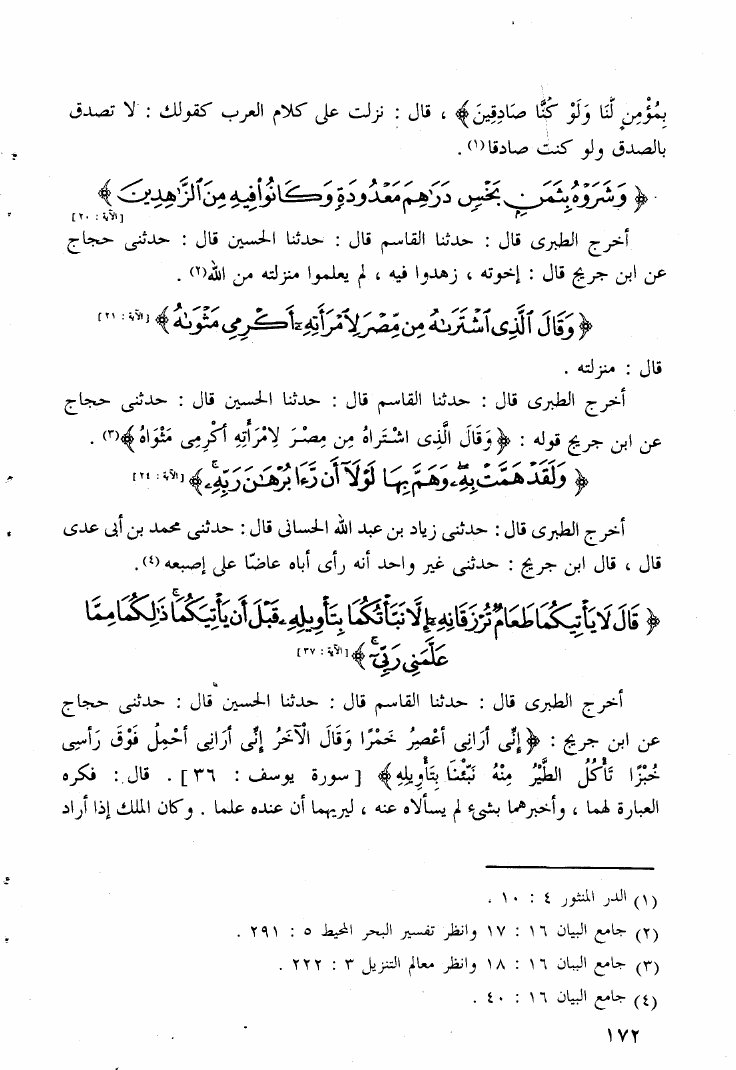 بِمُؤْمِنٍ لَّنَا وَلَوْ كُنَّا صَادِقِينَ﴾ ، قال : نزلت على كلام العرب كقولك : لا تصدق
بالصدق ولو كنت صادقا(١) .
﴿ وَشَرَوْهُ بِثَمَنٍ بَخْسٍ دَرَاهِمَ مَعْدُودَةٍ وَكَانُوا۟ فِيهِ مِنَ ٱلزَّٰهِدِينَ ﴾
[الآية : ٢٠]
أخرج الطبرى قال : حدثنا القاسم قال : حدثنا الحسين قال : حدثنى حجاج
عن ابن جريج قال : إخوته ، زهدوا فيه ، لم يعلموا منزلته من الله(٢) .
﴿ وَقَالَ ٱلَّذِى ٱشْتَرَىٰهُ مِن مِّصْرَ لِٱمْرَأَتِهِۦٓ أَكْرِمِى مَثْوَىٰهُ ﴾ [الآية : ٢١]
قال : منزلته .
أخرج الطبرى قال : حدثنا القاسم قال : حدثنا الحسين قال : حدثنى حجاج
عن ابن جريج قوله : ﴿ وَقَالَ الَّذِى اشْتَراهُ مِن مِصْرَ لِامْرَأَتِهِ أَكْرِمِى مَثْوَاهُ ﴾(٣) .
﴿ وَلَقَدْ هَمَّتْ بِهِۦۖ وَهَمَّ بِهَا لَوْلَآ أَن رَّءَا بُرْهَٰنَ رَبِّهِۦۚ ﴾ [الآية : ٢٤]
أخرج الطبرى قال : حدثنى زياد بن عبد الله الحسانى قال : حدثنى محمد بن أبى عدى
قال ، قال ابن جريج : حدثنى غير واحد أنه رأى أباه عاضّا على إصبعه(٤) .
﴿ قَالَ لَا يَأْتِيكُمَا طَعَامٌ تُرْزَقَانِهِۦٓ إِلَّا نَبَّأْتُكُمَا بِتَأْوِيلِهِۦ قَبْلَ أَن يَأْتِيَكُمَاۚ ذَٰلِكُمَا مِمَّا
عَلَّمَنِى رَبِّىٓۚ ﴾ [الآية : ٣٧]
أخرج الطبرى قال : حدثنا القاسم قال : حدثنا الحسين قال : حدثنى حجاج
عن ابن جريج : ﴿ إِنِّى أرَانِى أعْصِرُ خَمْرًا وَقَالَ الْآخَرُ إِنِّى أرَانِى أحْمِلُ فَوْقَ رَأسِى
خُبْزًا تَأكُلُ الطَّيْرُ مِنْهُ نَبِّئْنَا بِتَأْوِيلِهِ ﴾ [ سورة يوسف : ٣٦ ] . قال : فكره
العبارة لهما ، وأخبرهما بشىء لم يسألاه عنه ، ليريهما أن عنده علما . وكان الملك إذا أراد
(١) الدر المنثور ٤ : ١٠ .
(٢) جامع البيان ١٦ : ١٧ وانظر تفسير البحر المحيط ٥ : ٢٩١ .
(٣) جامع البيان ١٦ : ١٨ وانظر معالم التنزيل ٣ : ٢٢٢ .
(٤) جامع البيان ١٦ : ٤٠ .
١٧٢